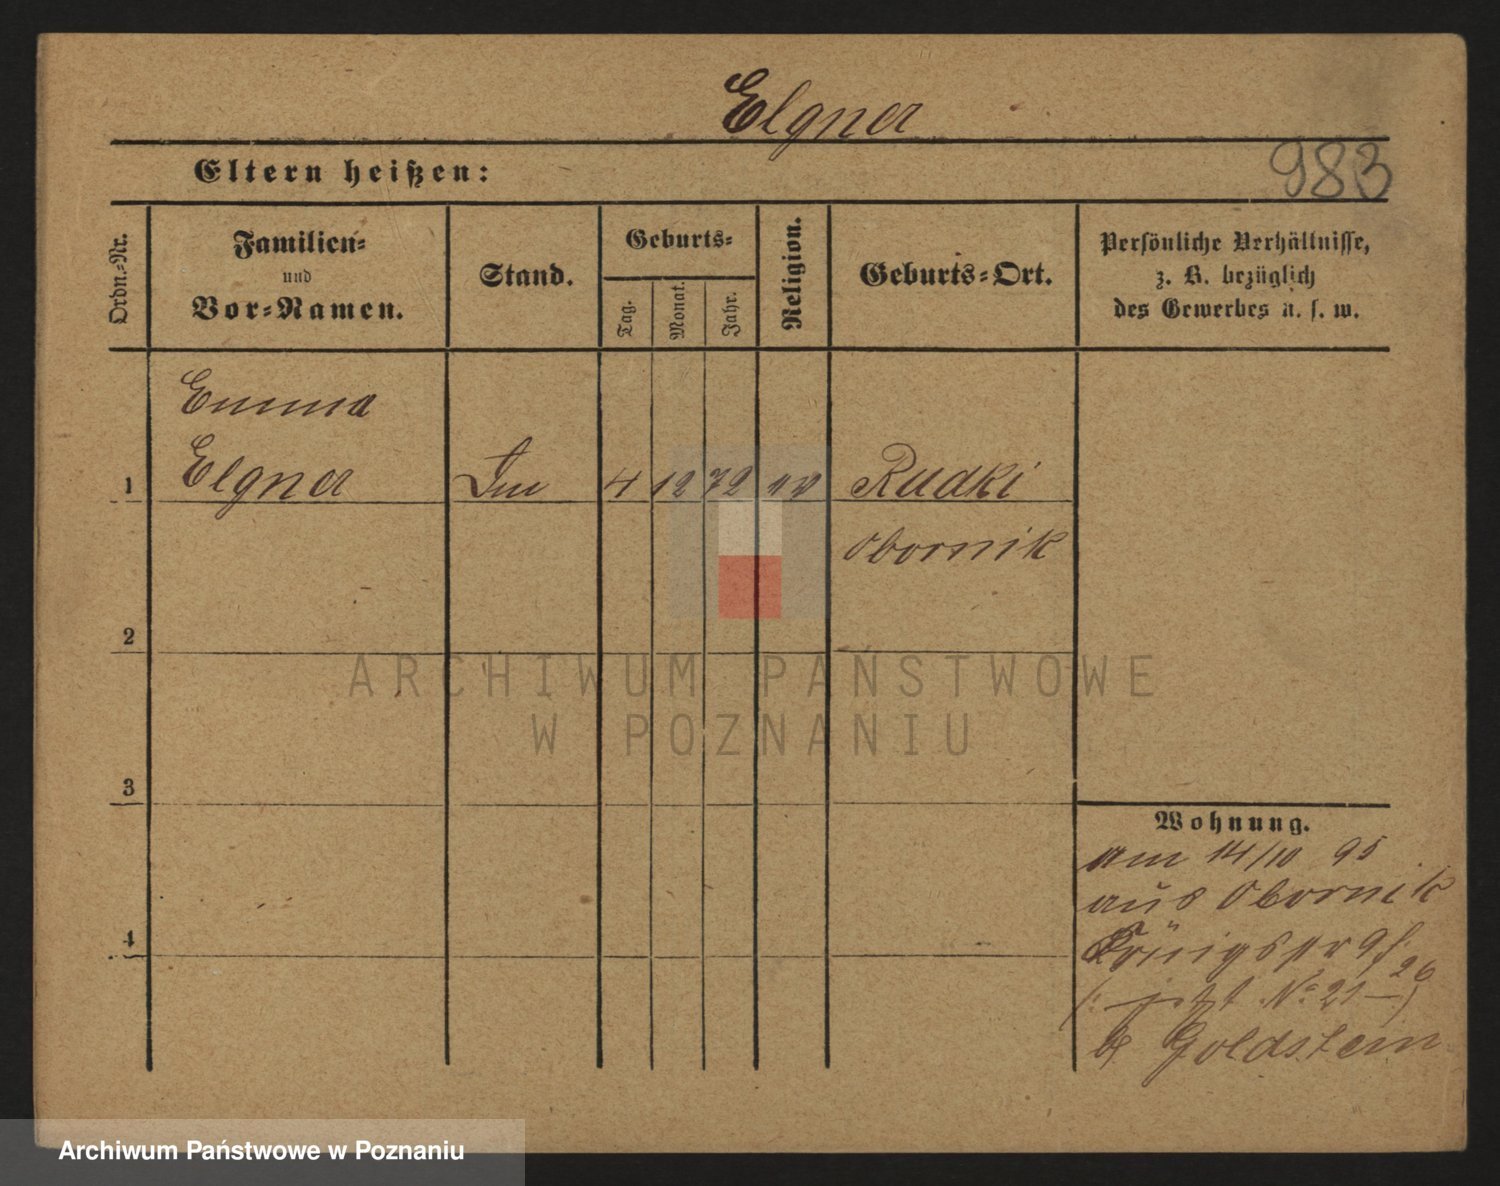 Elgner
983
Eltern heißen:
Ordn.-Nr.
Familien-
und
Vor-Namen.
Stand.
Geburts-
Tag.
Monat.
Jahr.
Religion.
Geburts-Ort.
Persönliche Verhältnisse,
z. B. bezüglich
des Gewerbes u. s. w.
Emma
1 Elgner 4 12 72 Rudki
Obornik
2
3
4
Wohnung.
am 14/10 95
aus Obornik
26
(: jetzt No 21 — )
b Goldstein
ARCHIWUM PAŃSTWOWE
W POZNANIU
Archiwum Państwowe w Poznaniu